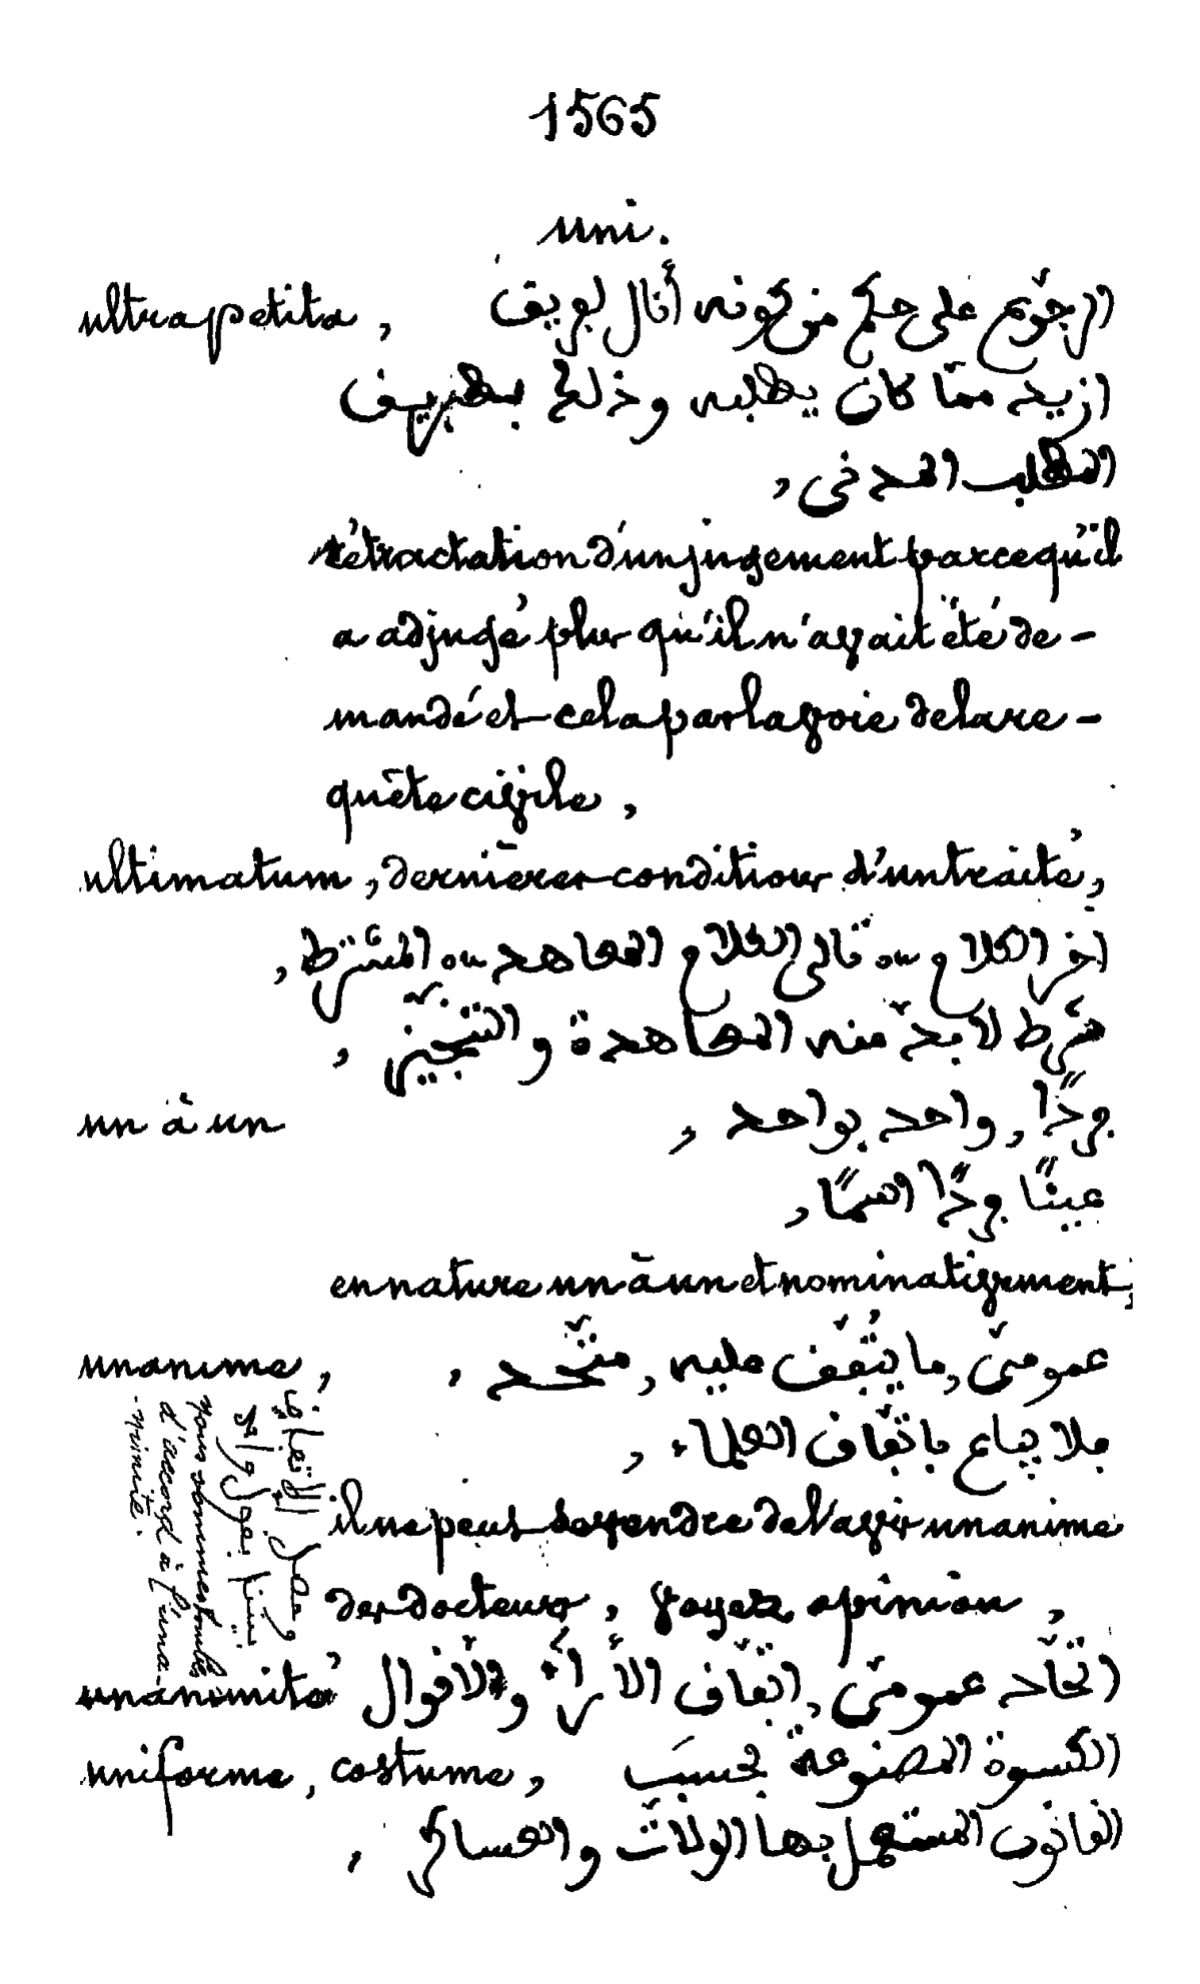 1565
uni.
ultra petita, الرجوع على حكم من كونه أنال لفريق
ازيد ممّا كان يطلبه وذلك بطريف
الطلب المدني,
rétractation d'un jugement parce qu'il
a adjugé plus qu'il n'avait été de-
mandé et cela par la voie de la re-
quête civile,
ultimatum, dernières conditions d'un traité,
اخر الكلام ou تالي الكلام المعاهد ou المشترط,
شرط لا بدّ منه المعاهدة والتنجيز,
un à un فردًا, واحد بواحد,
عينًا فردًا اسمًا,
en nature un à un et nominativement,
unanime, عموميّ, ما يتّفف عليه, متّحد,
فلا يباع باتّفاف العلماء,
il ne peut se vendre de l'avis unanime
des docteurs, voyez opinion,
وحصل الاتّفاف
بيننا بقول واحد
nous sommes tombés
d'accord à l'una-
nimité.
unanimité اتّحاد عموميّ, اتّفاف الأراء والأفوال
uniforme, costume, الكسوة المصنوعة بحسب
الفانون المستعمل بها الولات والعساكر,